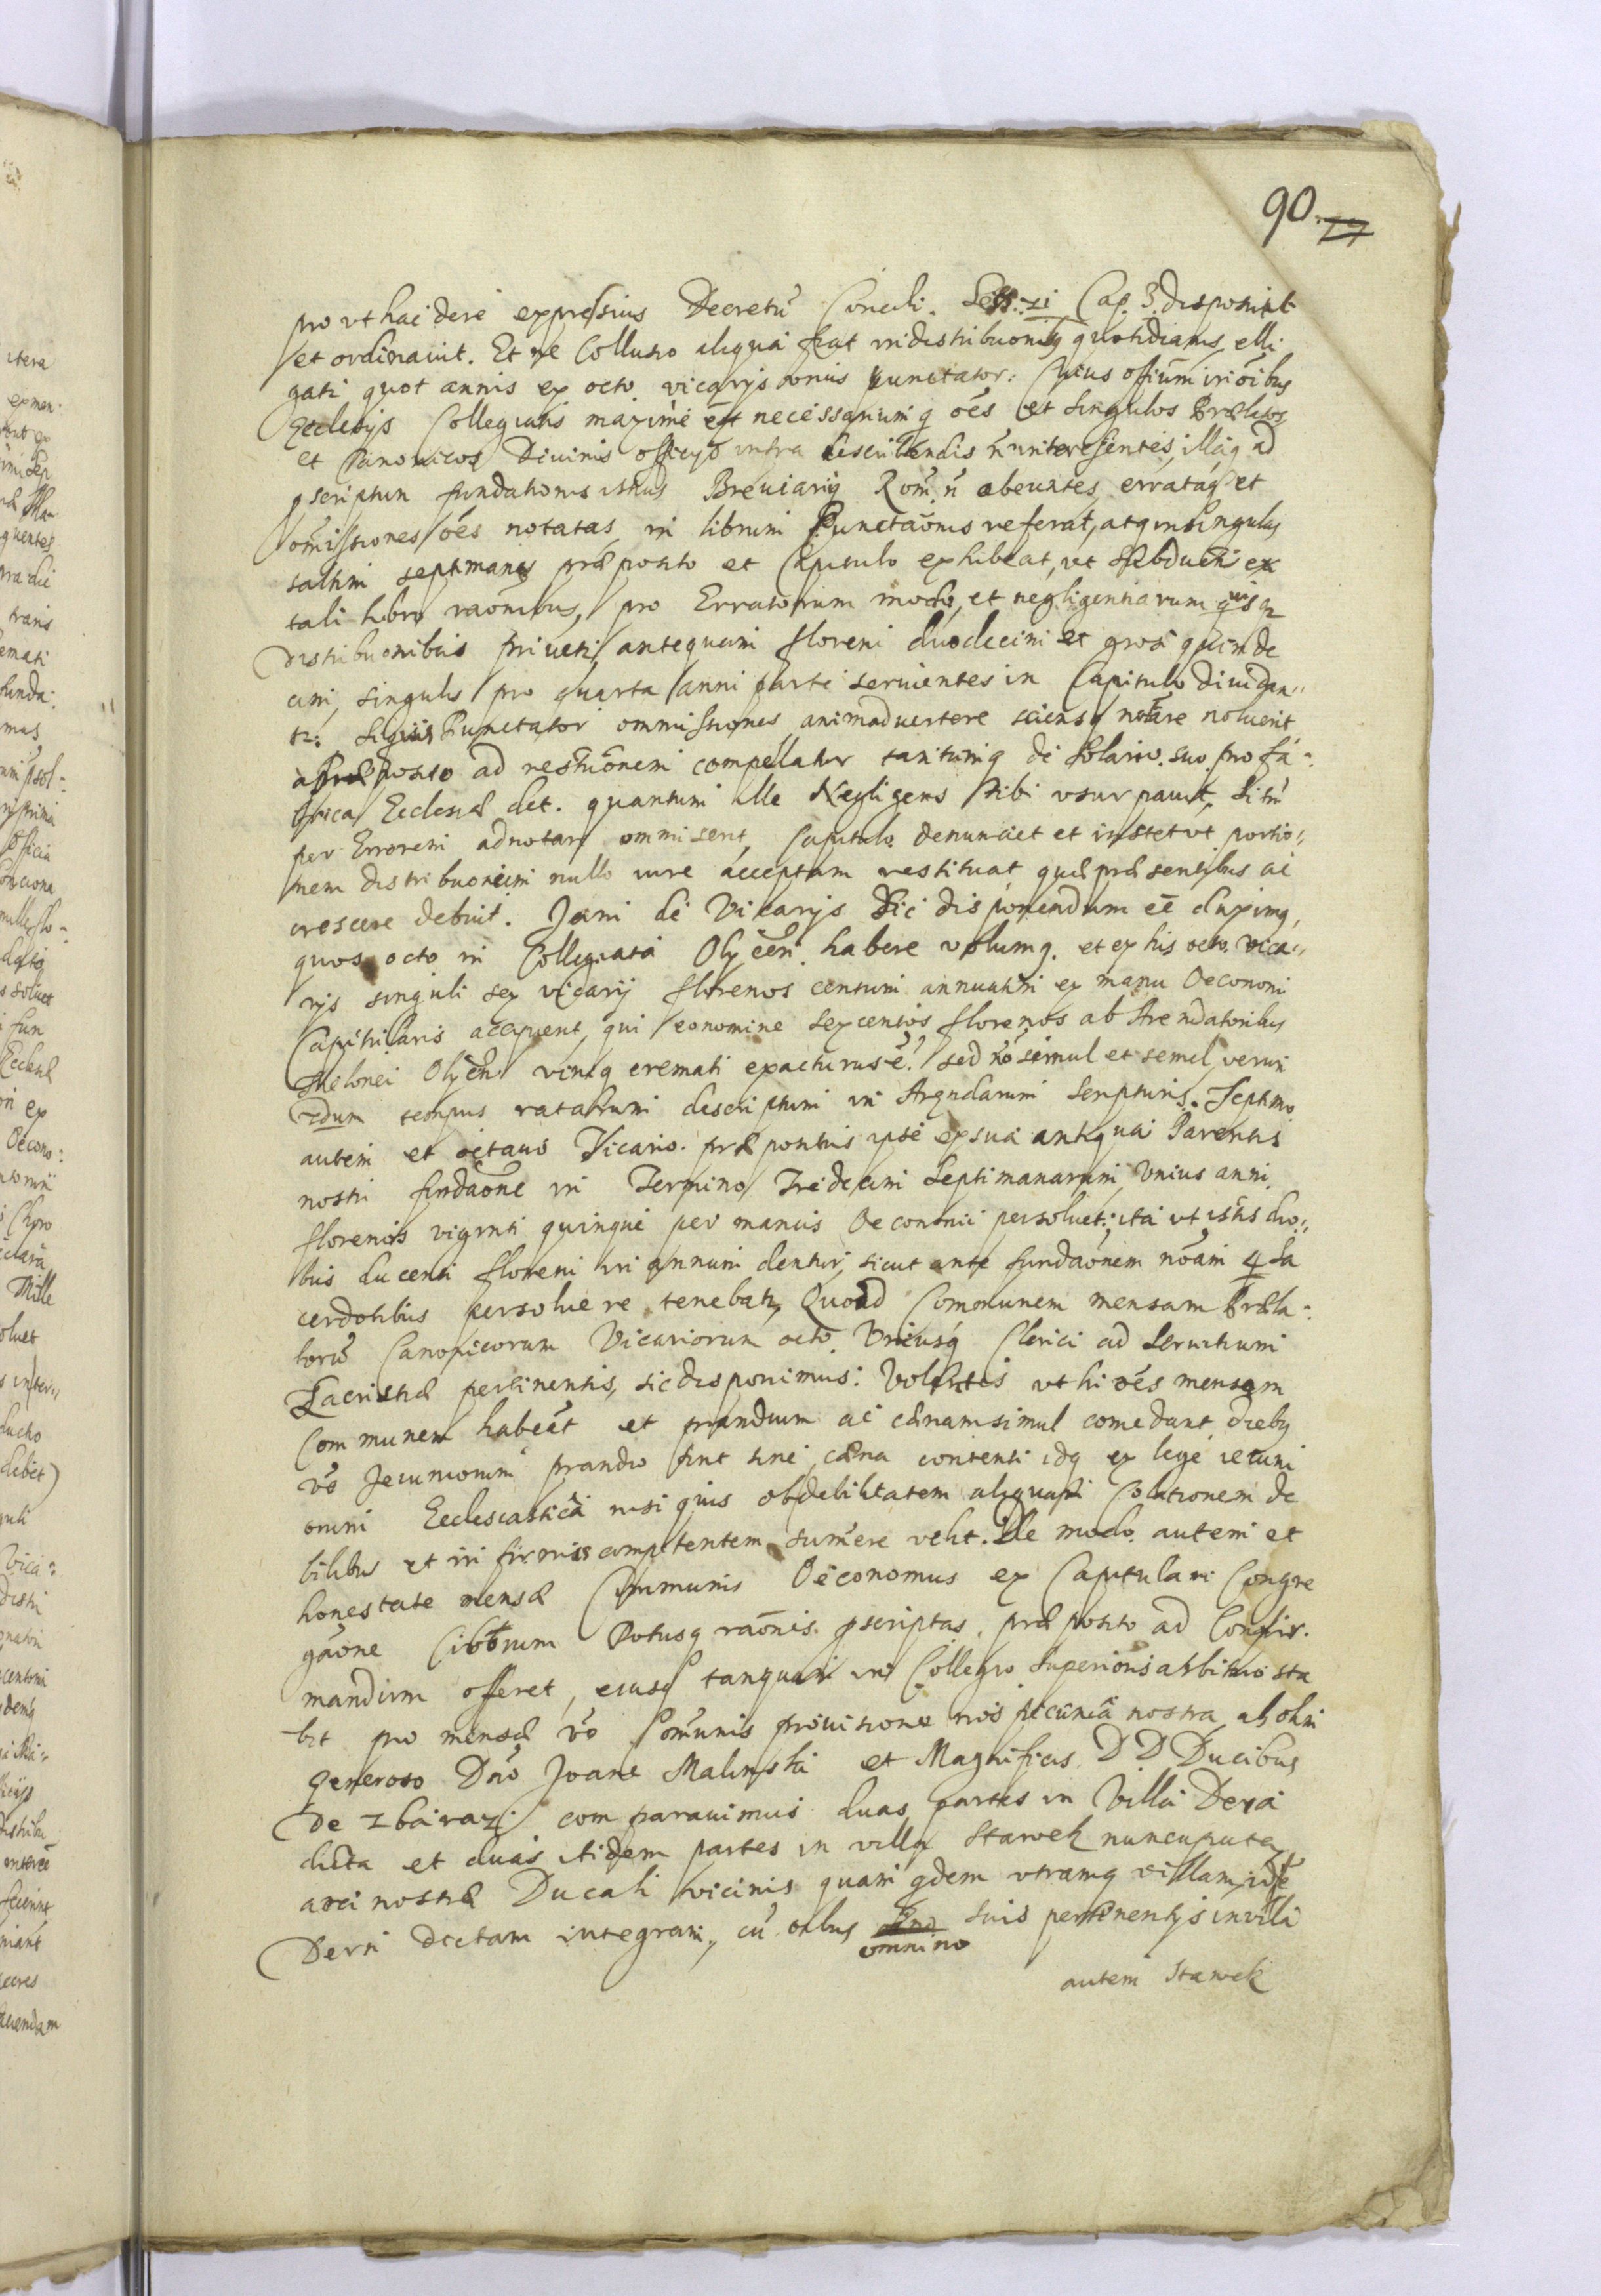 90. 77
pro vt hac de re expressius Decretū Concili. Sess: 21 Cap. 3. disposuit
et ordinauit. Et ne Collusio aliqua fiat in distribuonibq quotidianis, elli
gatr quot annis ex octo vicarijs vonus punctator: Cuius offiūm in oībus
Ecclesijs Collegiatis maxime est necessarium q oēs et singulos Prælatos
et Canonicos Diuinis officijs infra describendis nūnteressentes, illaq ad
pscriptum fundationis istius Breuiarij Rom. ñ abeuntes, errataq et
omissiones oēs notatas, in librum Punctaōnis referat, atq in singulis
saltim septimanis præposito et Capitulo exhibeat, vt subducti ex
tali libro raōnibus, pro Erratorum modo, et negligentiarum quisq
distribuonibus priuetr antequam floreni duodecim et grosi quinde
cim, singulis pro quarta anni parte seruientes in Capitulo diuidan"
tr: siquis Punctator ommissiones animaduertere sciensq notare noluerit
a præposito ad restiuōnem compellatur tantumq de Solario suo pro fá-
brica Ecclesiæ det. quantum ille Negligens sibi vsurpauit, Si tñ
per Errorem adnotare ommiserit, Capitulo denunciet et instet vt portio"
nem distribuonum nullo iure acceptam restituat, quæ præsentibus ac
crescere debuit. Jam de Vicarijs Sic disponendum eē duximq,
quos octo in Collegiata Olijcēn. habere volumq. et ex his octo Vica"
rijs singuli sex vicarij florenos centum annuatim ex manu Oeconomi
Capitularis accipient, qui eo nomine Sexcentos florenos ab Arendatoribus
Thelonei Olijcēn viniq cremati exacturus ē. sed nō simul et semel verum
scdum tempus ratarum descriptum in Arendarum Scripturis. Septimo
autem et octauo Vicario præpositus ipse ex sua antiqua Parentis
nostri fundaōne in Termino Tredecim Septimanarum Vnius anni
florenos viginti quinque per manus Oeconomi persoluet; ita vt istis duo"
bus ducenti floreni in annum dentur, sicut ante fundaōnem noām 4 Sa
cerdotibus persoluere tenebatr, Quoad Communem mensam Præla-
torū Canonicorum Vicariorum octo Vniusq Clerici ad Seruitium
Sacristiæ pertinentis, sic disponimus: Volentes vt hi oēs mensam
Communem habeāt et prandium ac cænam simul comedant, diebq
vō Jeiuniorum prandio sint sine cæna contenti idq ex lege ieiuni
omni Ecclesiastica nisi quis ob debilitatem aliquam Colationem de
bilibus et infirmis competentem sumere velit. De modo autem et
honestate mensæ Communis Oeconomus ex Capitulari Congre
gaōne Ciborum Potusq raōnis pscriptas, præposito ad Confir.
mandum offeret, eiusq tanquam in Collegio Superioris arbitrio sta
bit pro mensæ vō Comunis prouisione nos pecunia nostra ab olim
Generoso Dnō Joane Malinski et Magnificis D. D. Ducibus
de Zbaraz: comparauimus duas partes in Villa Dera
dicta et duas itidem partes in villa Stawek nuncupata
arci nostræ Ducali vicinis quam qdem vtramq villam, idē
Derñ dictam integram, cū oībus omnino suis pertinentijs in villa
autem Stawek